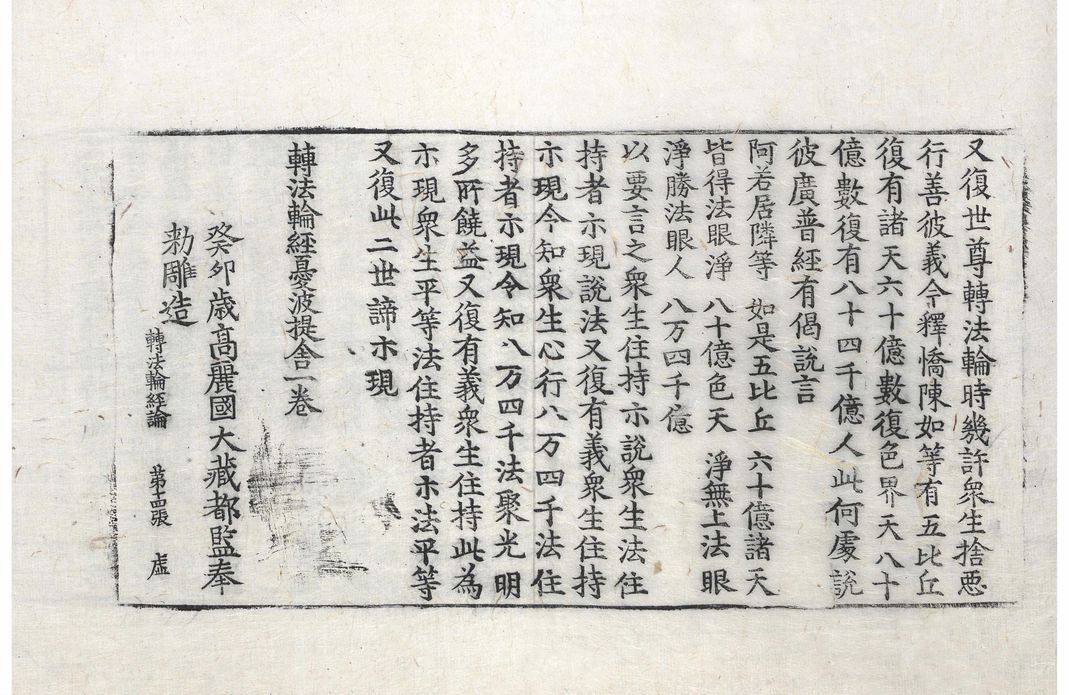 又復世尊轉法輪時幾許衆生捨惡
行善彼義今釋憍陳如等有五比丘
復有諸天六十億數復色界天八十
億數復有八十四千億人此何處說
彼廣普經有偈說言
阿若居隣等 如是五比丘 六十億諸天
皆得法眼淨 八十億色天 淨無上法眼
淨勝法眼人 八万四千億
以要言之衆生住持示說衆生法住
持者示現說法又復有義衆生住持
示現今知衆生心行八万四千法住
持者示現令知八万四千法聚光明
多所饒益又復有義衆生住持此為
示現衆生平等法住持者示法平等
又復此二世諦示現
轉法輪經憂波提舍一卷
癸卯歲高麗國大藏都監奉
勑雕造
轉法輪經論 第十四張 虛